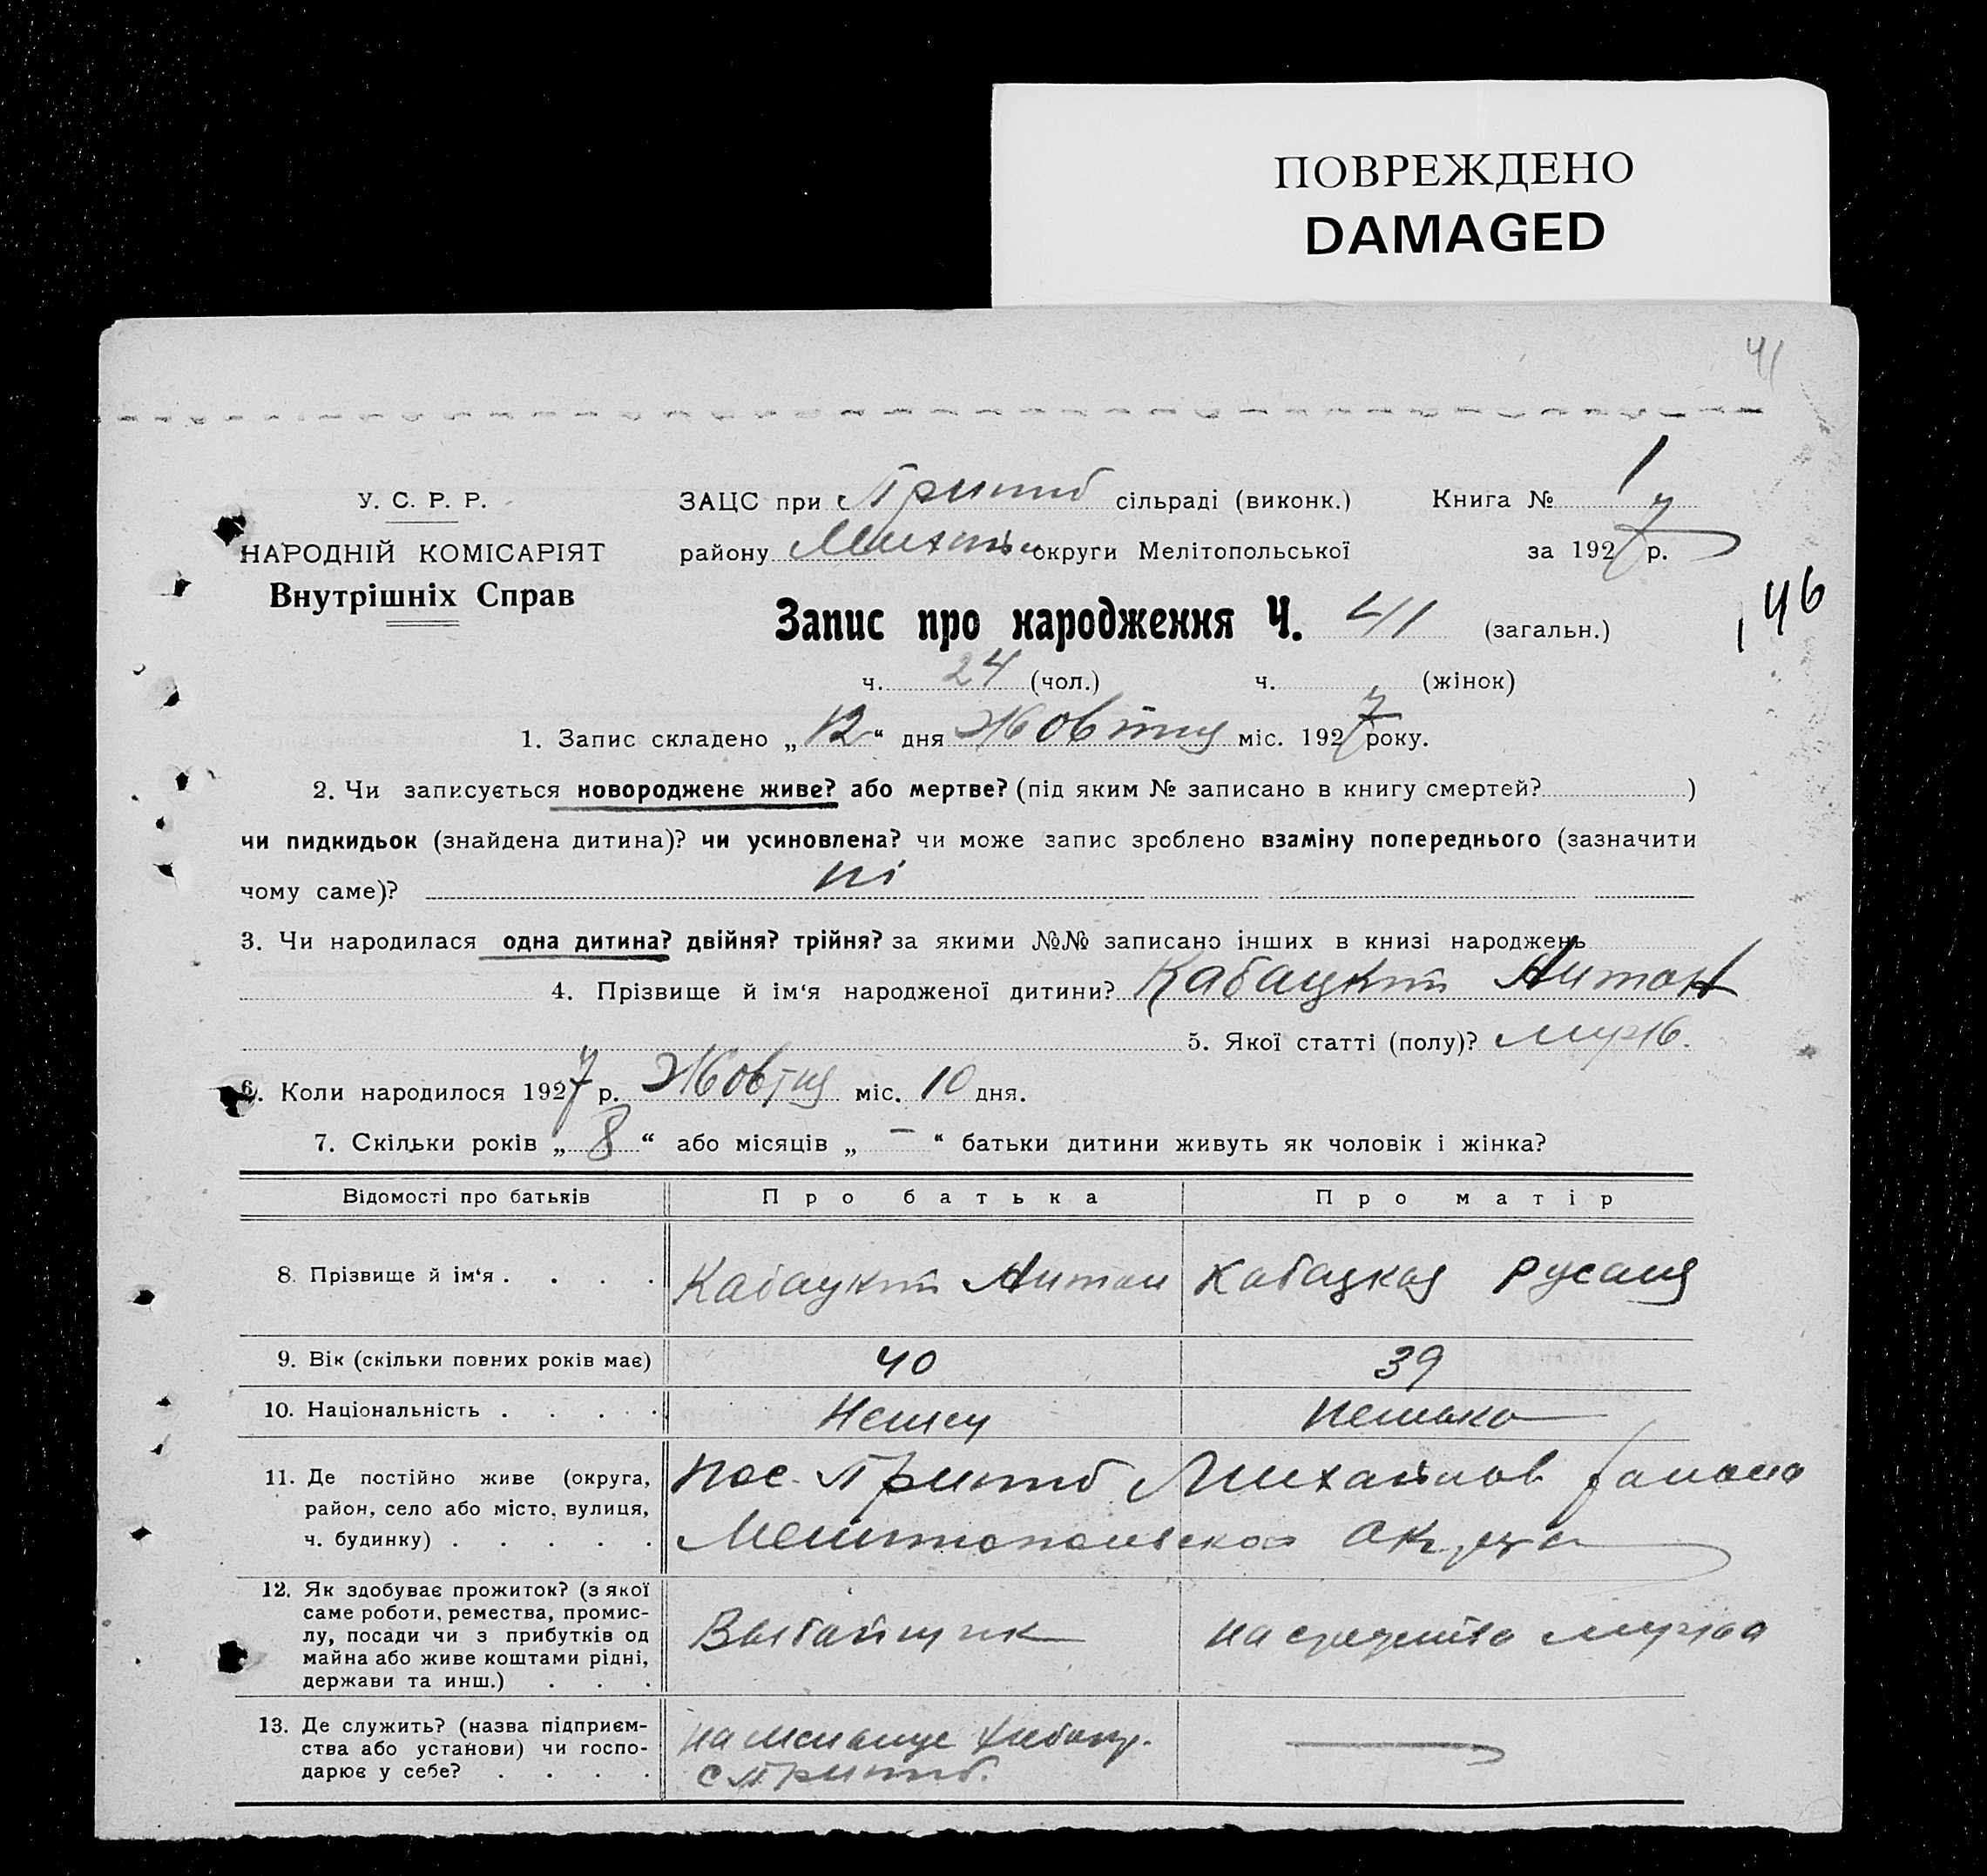 ПОВРЕЖДЕНО
DAMAGED
41
У. С. Р. Р.
НАРОДНІЙ КОМІСАРІЯТ
Внутрішніх Справ
ЗАЦС при с. Пришиб сільраді (виконк.) Книга № 1
району округи Мелітопольської за 1927 р.
Запис про народження Ч. 41 (загальн.)
46
ч. 24 (чол.) ч. (жінок)
1. Запис складено „12“ дня Жовтня міс. 1927 року.
2. Чи записується новороджене живе? або мертве? (під яким № записано в книгу смертей? )
чи пидкидьок (знайдена дитина)? чи усиновлена? чи може запис зроблено взаміну попереднього (зазначити
чому саме)? ні
3. Чи народилася одна дитина? двійня? трійня? за якими №№ записано інших в книзі народжень
4. Прізвище й ім‘я народженої дитини? Кабацкий Антон
5. Якої статті (полу)? муж.
6. Коли народилося 1927 р. Жовтня міс. 10 дня.
7. Скільки років „8“ або місяців „–“ батьки дитини живуть як чоловік і жінка?
Відомості про батьків Про батька Про матір
8. Прізвище й ім‘я . . . . Кабацкий Антон Кабацкая
9. Вік (скільки повних років має) 40 39
10. Національність . . . . Немец Немька
11. Де постійно живе (округа,
район, село або місто, вулиця,
ч. будинку) . . . . .
пос. Пришиб Михайлов району
Мелитопольской округа
12. Як здобуває прожиток? (з якої
саме роботи, ремества, промис-
лу, посади чи з прибутків од
майна або живе коштами рідні,
держави та инш.) . . .
на средства мужа
13. Де служить? (назва підприєм-
ства або установи) чи госпо-
дарює у себе? . . . .
на мельнице
с Пришиб.